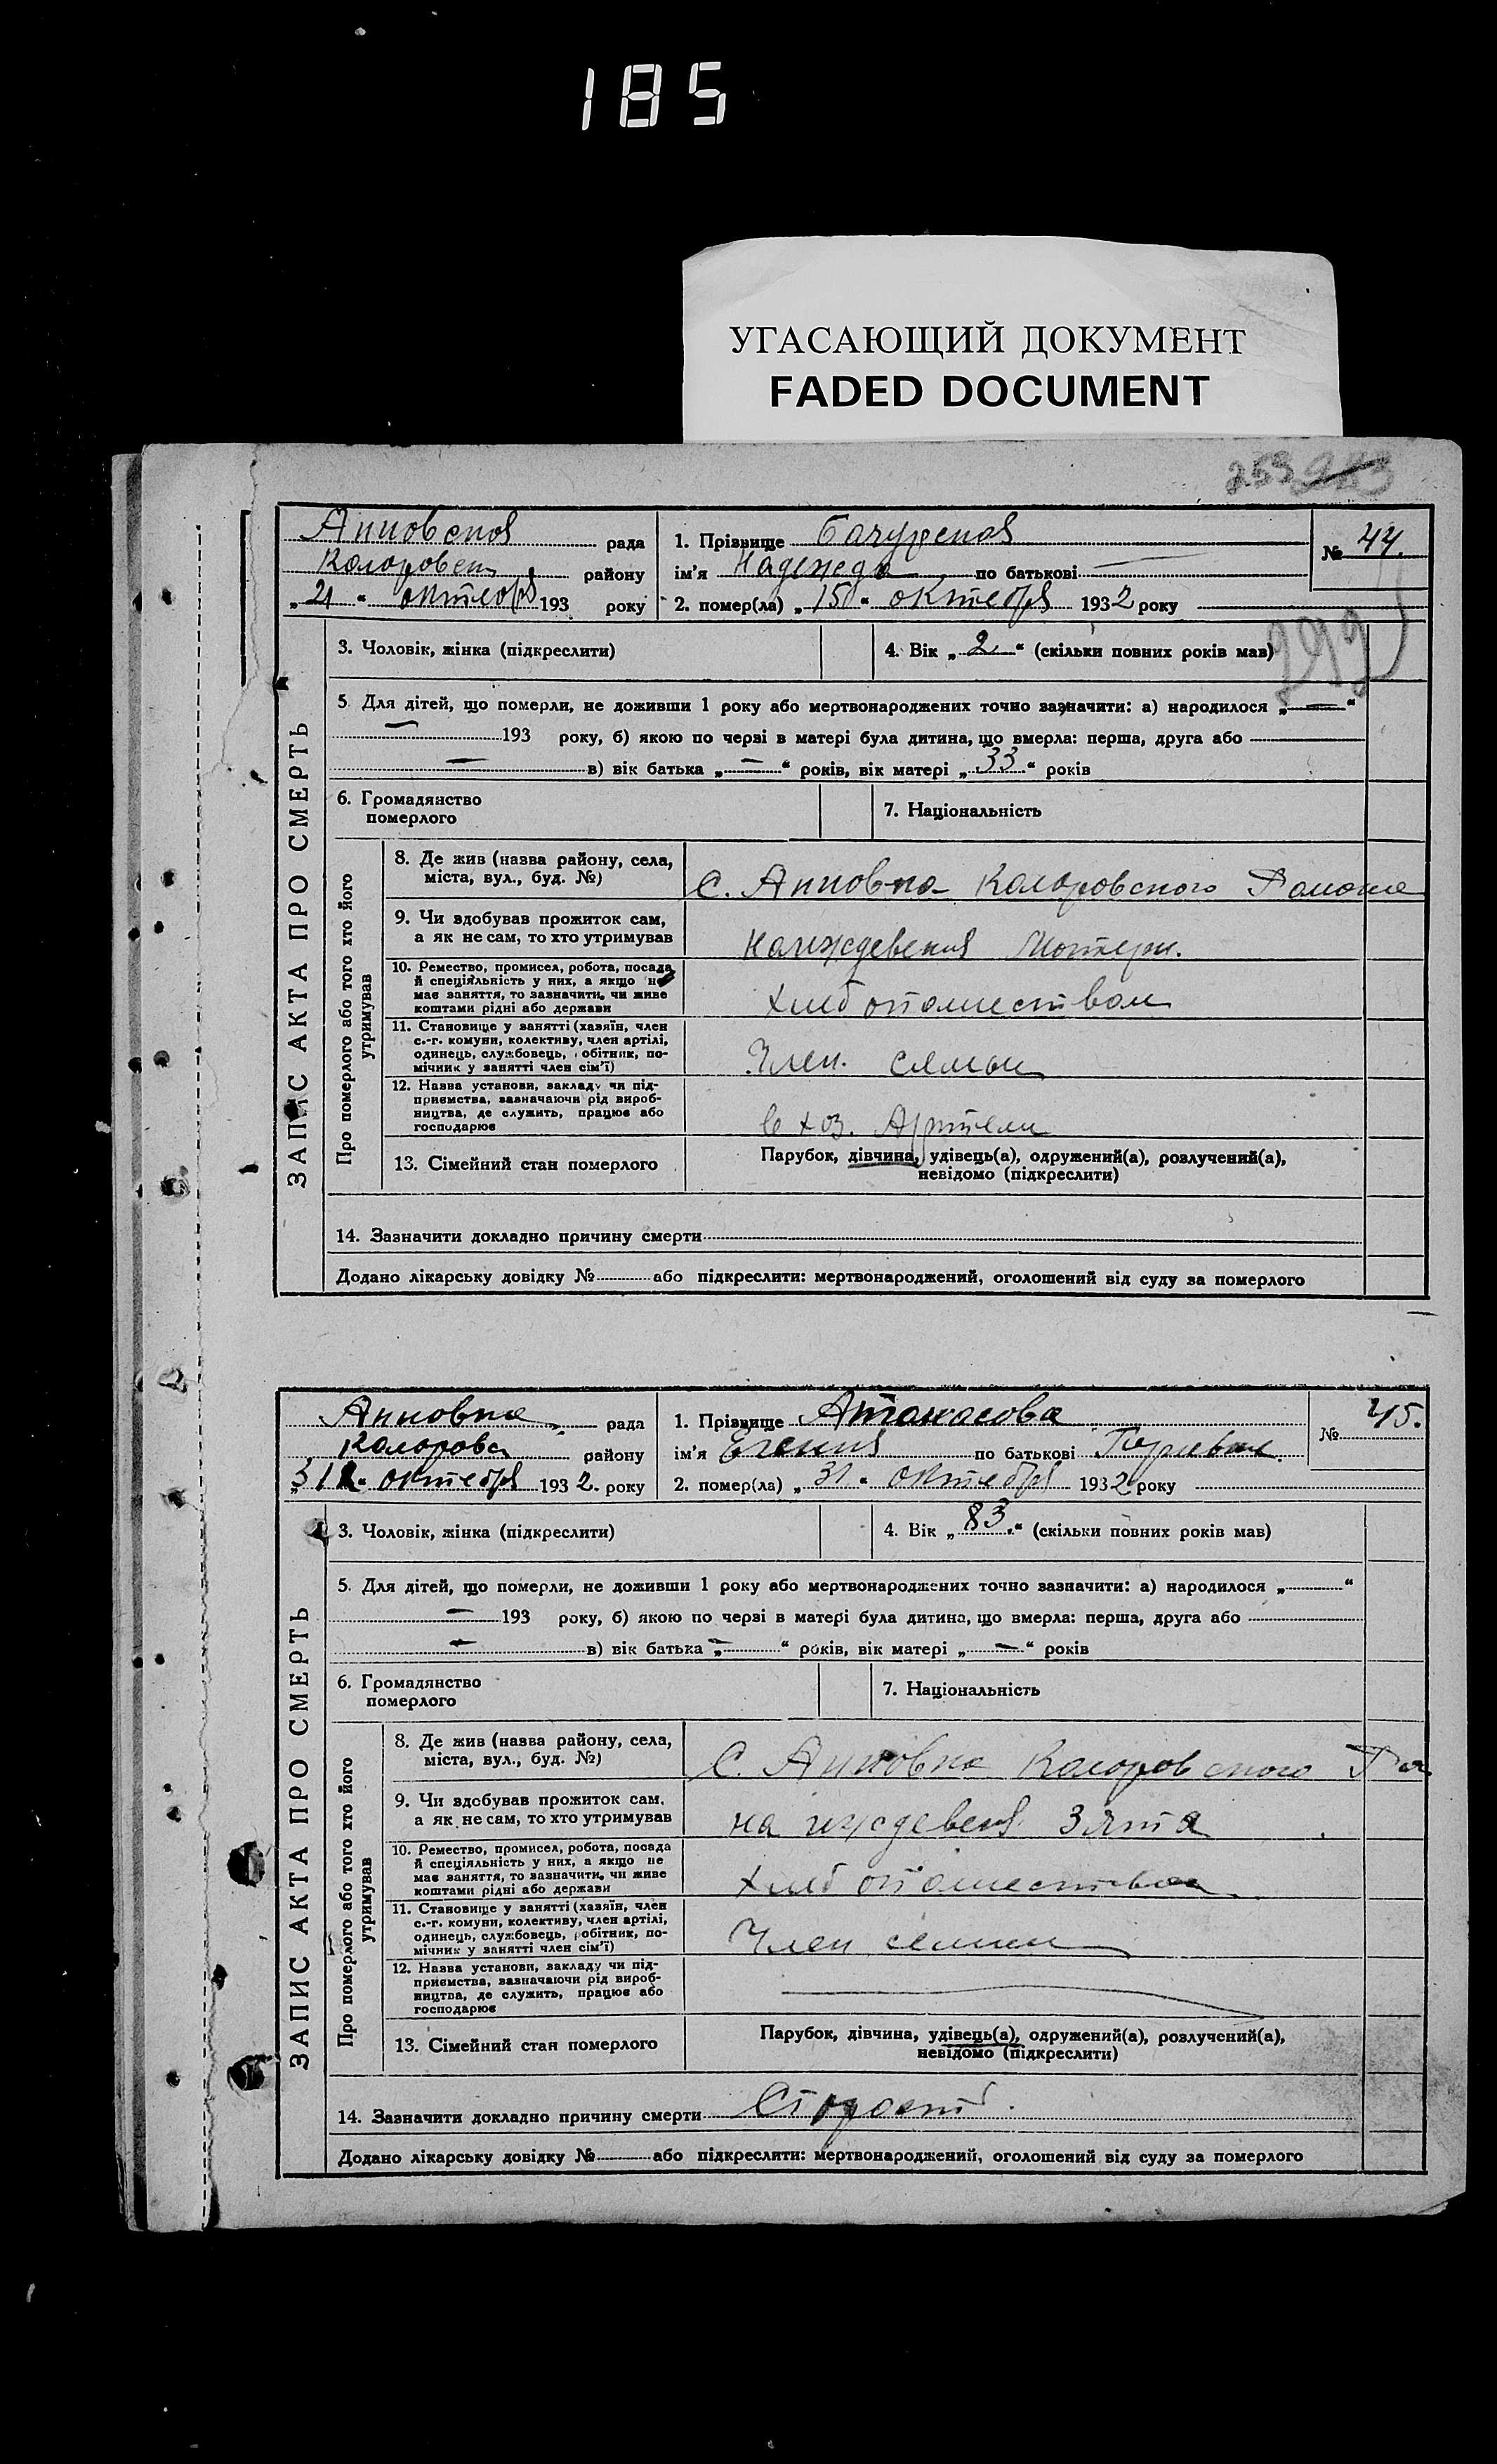 185
УГАСАЮЩИЙ ДОКУМЕНТ
FADED DOCUMENT
259
ЗАПИС АКТА ПРО СМЕРТЬ
Анновская рада
Коларовск району
„21“ октября 193 року
1. Прізвище Бачурская
ім'я Надежда по батькові —
2. помер(ла) „15“ октября 1932 року
№ 44.
292
3. Чоловік, жінка (підкреслити)
4. Вік „2“ (скільки повних років мав)
5. Для дітей, що померли, не доживши 1 року або мертвонароджених точно зазначити: а) народилося „—“
— 193 року, б) якою по черзі в матері була дитина, що вмерла: перша, друга або
— в) вік батька „—“ років, вік матері „33“ років
6. Громадянство
померлого
7. Національність
Про померлого або того хто його
утримував
8. Де жив (назва району, села,
міста, вул., буд. №)
С. Анновка Коларовского Района
9. Чи здобував прожиток сам,
а як не сам, то хто утримував
Матери.
10. Ремество, промисел, робота, посада
й спеціяльність у них, а якщо не
має заняття, то зазначити, чи живе
коштами рідні або держави
11. Становище у занятті (хазяїн, член
с.-г. комуни, колективу, член артілі,
одинець, службовець, робітник, по-
мічник у занятті член сім'ї)
Член. семьи
12. Назва установи, закладу чи під-
приємства, зазначаючи рід вироб-
ництва, де служить, працює або
господарює
в хоз. Артели
13. Сімейний стан померлого
Парубок, дівчина, удівець(а), одружений(а), розлучений(а),
невідомо (підкреслити)
14. Зазначити докладно причину смерти
Додано лікарську довідку № або підкреслити: мертвонароджений, оголошений від суду за померлого
ЗАПИС АКТА ПРО СМЕРТЬ
Анновка рада
Коларовск району
„31“ октября 1932. року
1. Прізвище Атанасова
ім'я по батькові
2. помер(ла) „31“ октября 1932 року
№ 45.
3. Чоловік, жінка (підкреслити)
4. Вік „83.“ (скільки повних років мав)
5. Для дітей, що померли, не доживши 1 року або мертвонароджених точно зазначити: а) народилося „ “
— 193 року, б) якою по черзі в матері була дитина, що вмерла: перша, друга або
— в) вік батька „—“ років, вік матері „—“ років
6. Громадянство
померлого
7. Національність
Про померлого або того хто його
утримував
8. Де жив (назва району, села,
міста, вул., буд. №)
С. Анновка Коларовского Ра
9. Чи здобував прожиток сам,
а як не сам, то хто утримував
на иждевения Зятя
10. Ремество, промисел, робота, посада
й спеціяльність у них, а якщо не
має заняття, то зазначити, чи живе
коштами рідні або держави
11. Становище у занятті (хазяїн, член
с.-г. комуни, колективу, член артілі,
одинець, службовець, робітник, по-
мічник у занятті член сім'ї)
Член семьи
12. Назва установи, закладу чи під-
приємства, зазначаючи рід вироб-
ництва, де служить, працює або
господарює
13. Сімейний стан померлого
Парубок, дівчина, удівець(а), одружений(а), розлучений(а),
невідомо (підкреслити)
14. Зазначити докладно причину смерти Старость.
Додано лікарську довідку № або підкреслити: мертвонароджений, оголошений від суду за померлого